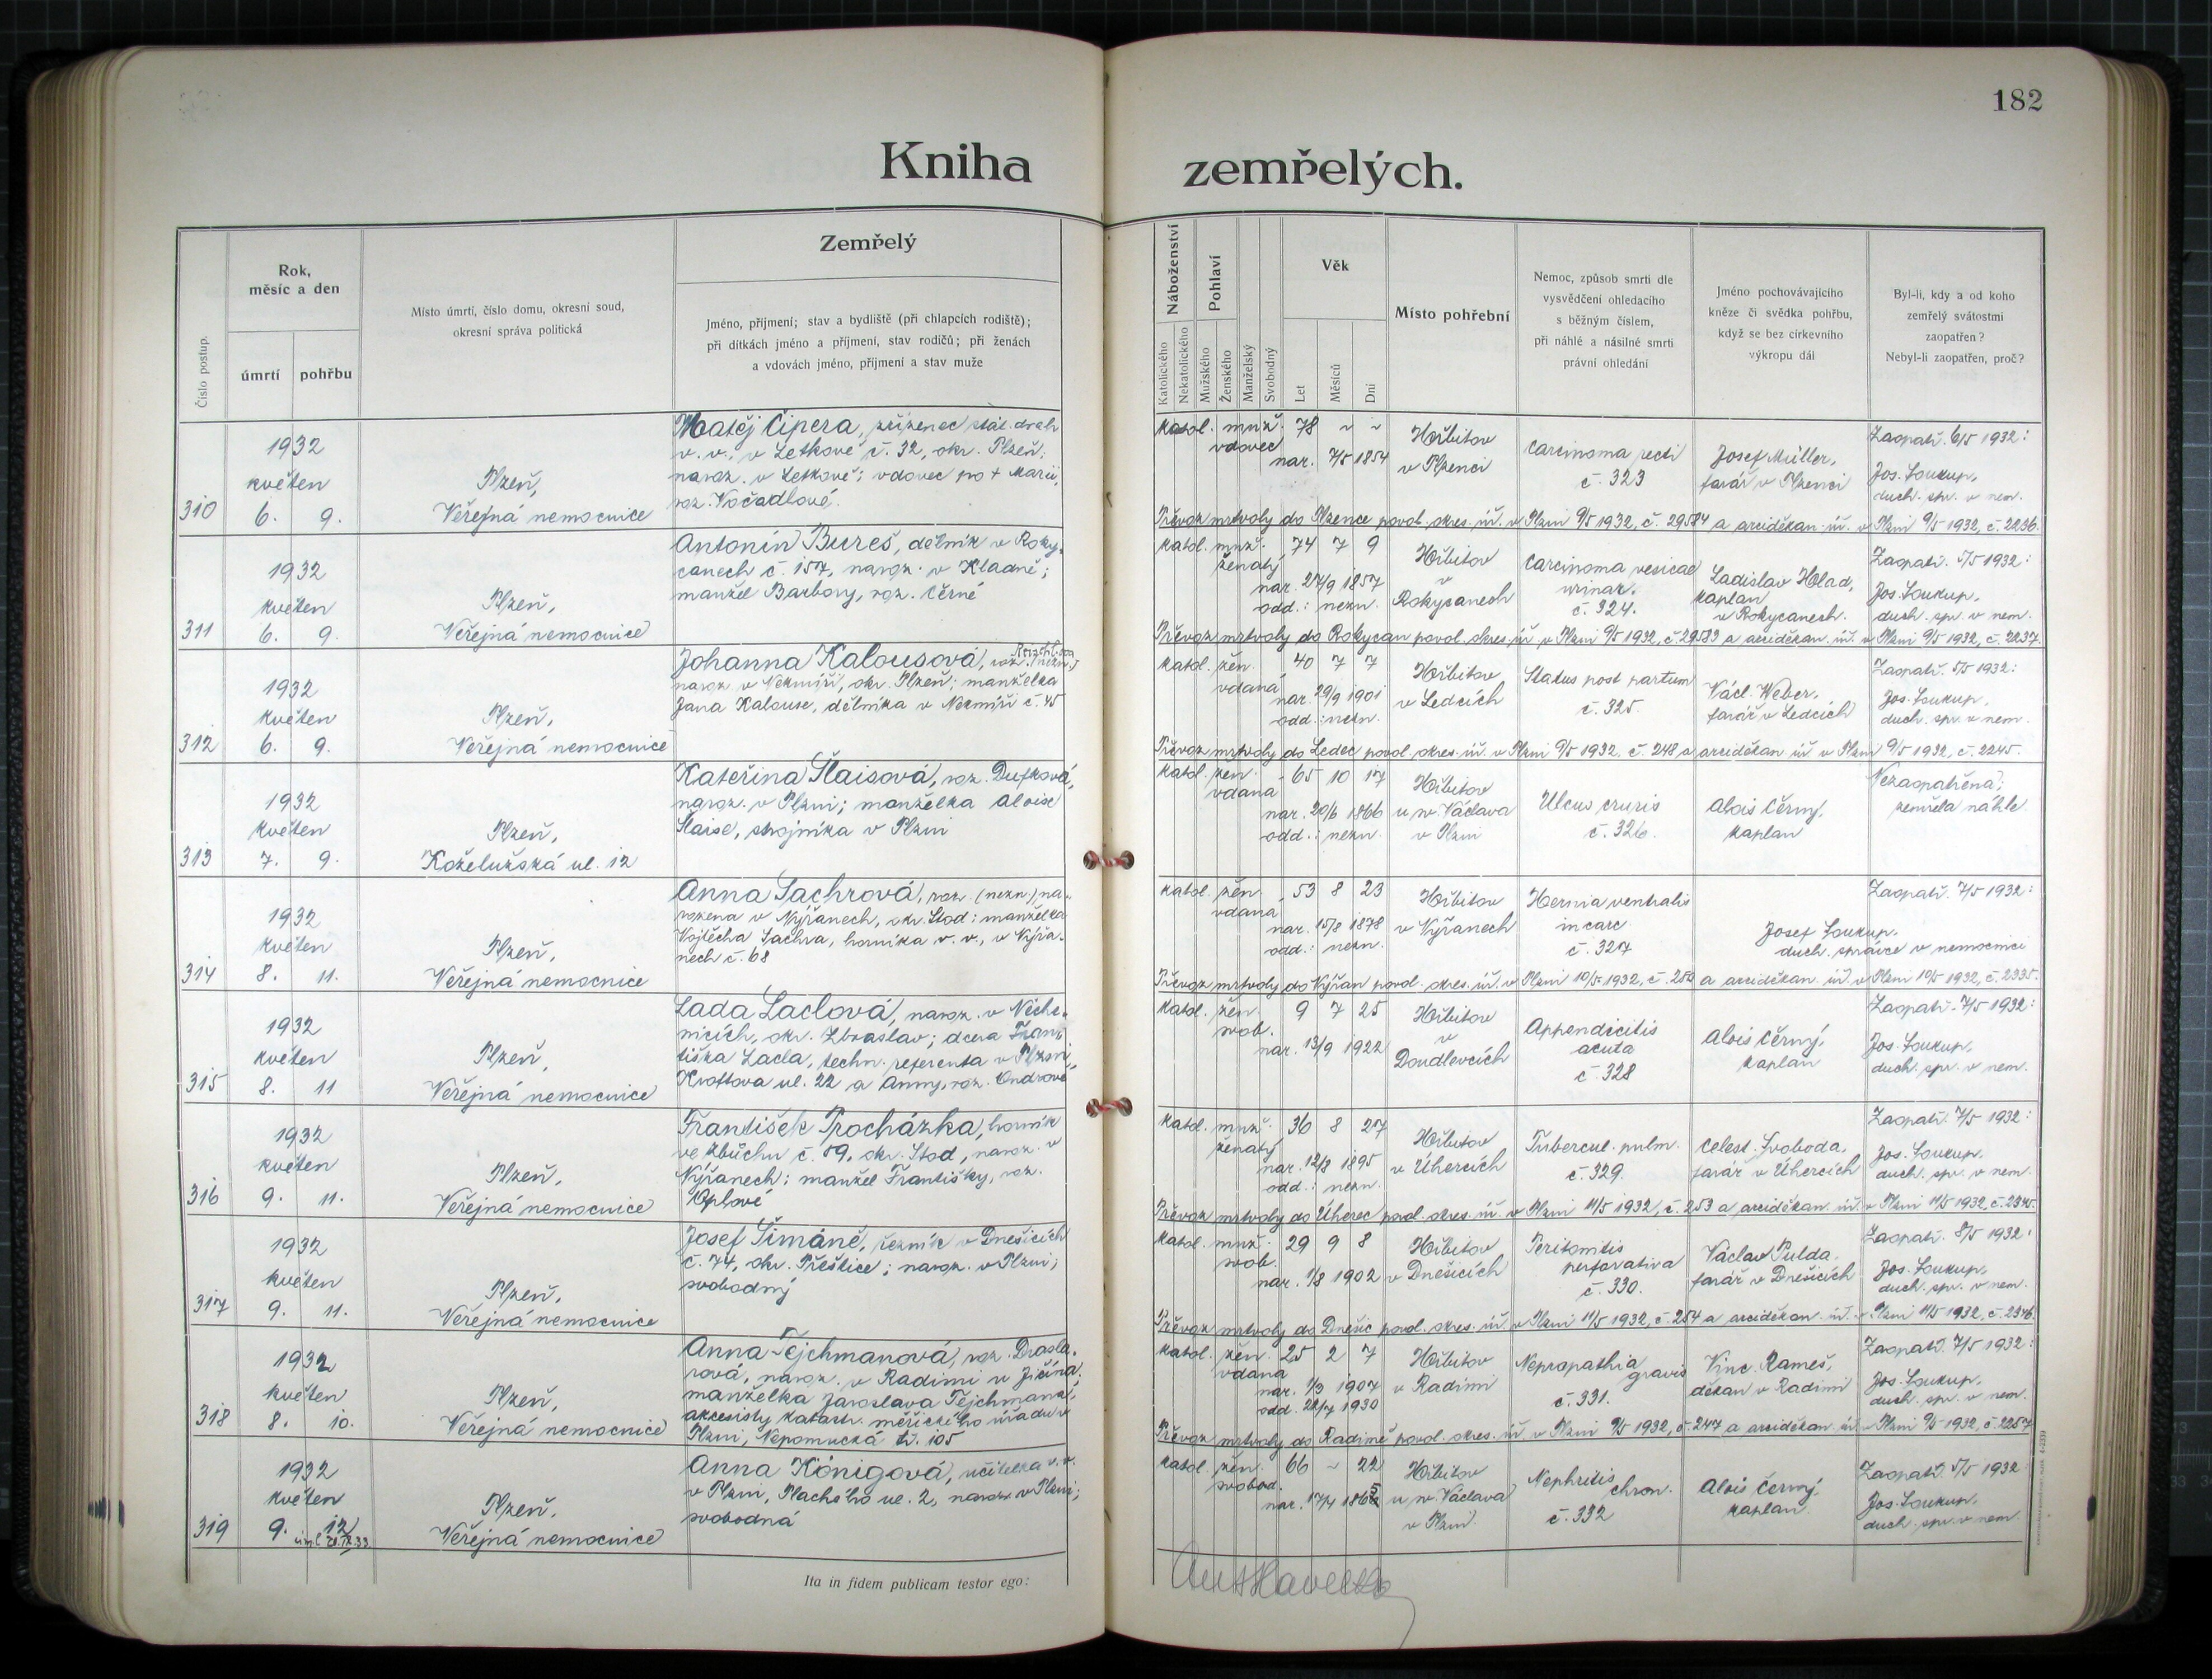 182
Kniha zemřelých.
Číslo postup.
Rok,
měsíc a den
úmrtí
pohřbu
Místo úmrtí, číslo domu, okresní soud,
okresní správa politická
Zemřelý
Jméno, příjmení; stav a bydliště (při chlapcích rodiště);
při dítkách jméno a příjmení, stav rodičů; při ženách
a vdovách jméno, příjmení a stav muže
Náboženství
Katolického
Nekatolického
Pohlaví
Mužského
Ženského
Manželský
Svobodný
Věk
Let
Měsíců
Dní
Místo pohřební
Nemoc, způsob smrti dle
vysvědčení ohledacího
s běžným číslem,
při náhlé a násilné smrti
právní ohledání
Jméno pochovávajícího
kněze či svědka pohřbu,
když se bez církevního
výkropu dál
Byl-li, kdy a od koho
zemřelý svátostmi
zaopatřen?
Nebyl-li zaopatřen, proč?
310
1932
květen
6. 9.
Plzeň,
Veřejná nemocnice
Matěj Cipera, zřízenec stát. drah
v. v., v Letkově č. 32, okr. Plzeň;
naroz. v Letkově; vdovec po + Marii,
roz. Vočadlové.
katol. muž. 78 ~ ~
vdovec
nar. 7/5 1854
Hřbitov
v Plzenci
Carcinoma recti
č. 323
Josef Müller,
farář v Plzenci
Zaopatř. 6/5 1932:
Jos. Soukup,
duch. spr. v nem.
Převoz mrtvoly do Plzence povol. okres. úř. v Plzni 9/5 1932, č. 29584 a arciděkan. úř. v Plzni 9/5 1932, č. 2236.
311
1932
květen
6. 9.
Plzeň,
Veřejná nemocnice
Antonín Bureš, dělník v Roky-
canech č. 157, naroz. v Kladně;
manžel Barbory, roz. Černé
katol. muž. 74 7 9
ženatý
nar. 27/9 1857
odd.: nezn.
Hřbitov
v
Rokycanech
Carcinoma vesicae
urinar.
č. 324.
Ladislav Hlad,
kaplan
v Rokycanech.
Zaopatř. 5/5 1932:
Jos. Soukup,
duch. spr. v nem.
Převoz mrtvoly do Rokycan povol. okres. úř. v Plzni 9/5 1932, č. 29583 a arciděkan. úř. v Plzni 9/5 1932, č. 2237.
312
1932
květen
6. 9.
Plzeň,
Veřejná nemocnice
Johanna Kalousová, roz. (nezn.)
naroz. v Nekmíři, okr. Plzeň; manželka
Jana Kalouse, dělníka v Nekmíři č. 45
katol. žen. 40 7 7
vdaná
nar. 29/9 1901
odd.: nezn.
Hřbitov
v Ledcích
Status post partum
č. 325.
Václ. Weber,
farář v Ledcích
Zaopatř. 5/5 1932:
Jos. Soukup,
duch. spr. v nem.
Převoz mrtvoly do Ledec povol. okres. úř. v Plzni 9/5 1932, č. 248 a arciděkan. úř. v Plzni 9/5 1932, č. 2245.
313
1932
květen
7. 9.
Plzeň,
Koželužská ul. 12
Kateřina Šlaisová, roz. Dufková,
naroz. v Plzni; manželka Aloise
Šlaise, strojníka v Plzni
katol. žen. 65 10 17
vdaná
nar. 20/6 1866
odd.: nezn.
Hřbitov
u sv. Václava
v Plzni
Ulcus cruris
č. 326.
Alois Černý,
kaplan
Nezaopatřena;
zemřela náhle
314
1932
květen
8. 11.
Plzeň,
Veřejná nemocnice
Anna Sachrová, roz. (nezn.) na-
rozena v Nýřanech, okr. Stod; manželka
Vojtěcha Sachra, horníka v. v., v Nýřa-
nech č. 68
katol. žen. 53 8 23
vdaná
nar. 15/8 1878
odd.: nezn.
Hřbitov
v Nýřanech
Hernia ventralis
incarc.
č. 327
Josef Soukup,
duch. správce v nemocnici
Zaopatř. 7/5 1932:
Převoz mrtvoly do Nýřan povol. okres. úř. v Plzni 10/5 1932, č. 250 a arciděkan. úř. v Plzni 10/5 1932, č. 2335.
315
1932
květen
8. 11
Plzeň,
Veřejná nemocnice
Lada Laclová, naroz. v Něche-
nicích, okr. Zbraslav; dcera Fran-
tiška Lacla, techn. referenta v Plzni,
Kroftova ul. 22 a Anny, roz. Ondrové
katol. žen. 9 7 25
svob.
nar. 13/9 1922
Hřbitov
v
Doudlevcích
Appendicitis
acuta
č. 328
Alois Černý,
kaplan
Zaopatř. 7/5 1932:
Jos. Soukup,
duch. spr. v nem.
316
1932
květen
9. 11.
Plzeň,
Veřejná nemocnice
František Procházka, horník
ve Zbůchu č. 89, okr. Stod, naroz. v
Nýřanech; manžel Františky, roz.
Oplové
katol. muž. 36 8 27
ženatý
nar. 12/8 1895
odd.: nezn.
Hřbitov
v Úhercích
Tubercul. pulm.
č. 329.
Celest. Svoboda,
farář v Úhercích
Zaopatř. 7/5 1932:
Jos. Soukup,
duch. spr. v nem.
Převoz mrtvoly do Úherec povol. okres. úř. v Plzni 11/5 1932, č. 253 a arciděkan. úř. v Plzni 11/5 1932, č. 2345.
317
1932
květen
9. 11.
Plzeň,
Veřejná nemocnice
Josef Šimáně, řezník v Dnešicích
č. 74, okr. Přeštice; naroz. v Plzni;
svobodný
katol. muž. 29 9 8
svob.
nar. 1/8 1902
Hřbitov
v Dnešicích
Peritonitis
perforativa
č. 330.
Václav Pulda,
farář v Dnešicích
Zaopatř. 8/5 1932:
Jos. Soukup,
duch. spr. v nem.
Převoz mrtvoly do Dnešic povol. okres. úř. v Plzni 11/5 1932, č. 254 a arciděkan. úř. v Plzni 11/5 1932, č. 2346.
318
1932
květen
8. 10.
Plzeň,
Veřejná nemocnice
Anna Tejchmanová, roz. Drasla-
rová, naroz. v Radimi u Jičína;
manželka Jaroslava Tejchmana,
akcesisty katastr. měřického úřadu v
Plzni, Nepomucká tř. 105
katol. žen. 25 2 7
vdaná
nar. 1/3 1907
odd. 26/7 1930
Hřbitov
v Radimi
Nepropathia
gravis
č. 331.
Vinc. Rameš,
děkan v Radimi
Zaopatř. 7/5 1932:
Jos. Soukup,
duch. spr. v nem.
Převoz mrtvoly do Radimě povol. okres. úř. v Plzni 9/5 1932, č. 247 a arciděkan. úř. v Plzni 9/5 1932, č. 2257
319
1932
květen
9. 12
Plzeň,
Veřejná nemocnice
Anna Königová, učitelka v. v.
v Plzni, Plachého ul. 2, naroz. v Plzni;
svobodná
katol. žen. 66 ~ 22
svobod.
nar. 17/4 1866
Hřbitov
u sv. Václava
v Plzni.
Nephritis
chron.
č. 332
Alois Černý,
kaplan.
Zaopatř. 5/5 1932
Jos. Soukup,
duch. spr. v nem.
Ita in fidem publicam testor ego: